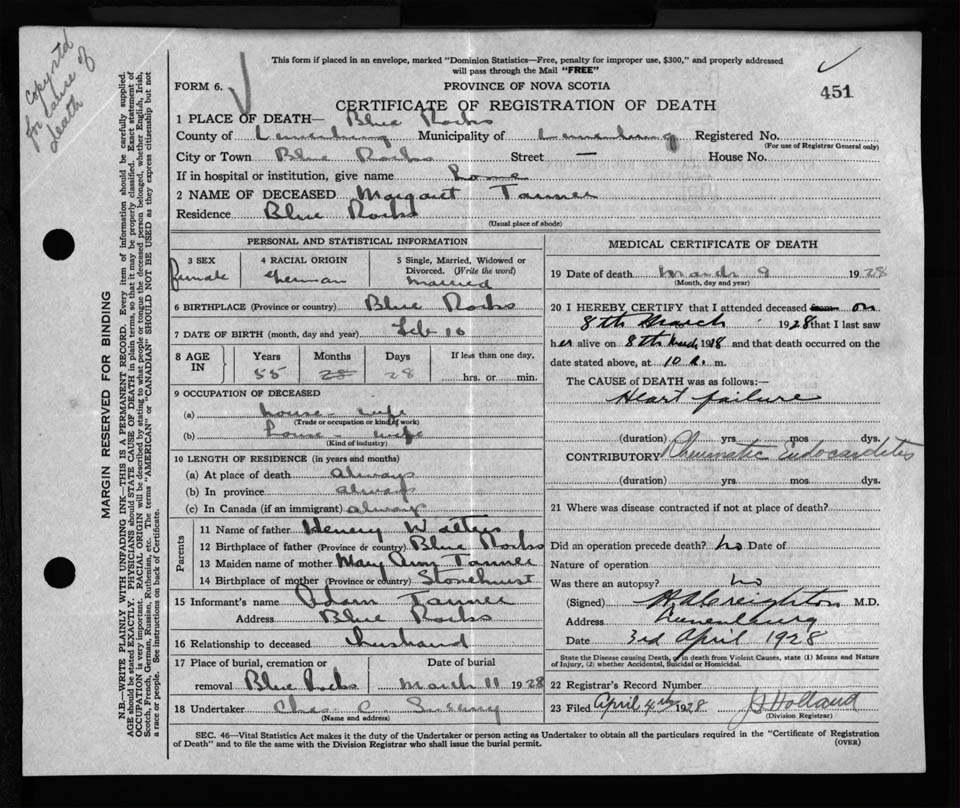 Copy std
for cause of
death
This form if placed in an envelope, marked "Dominion Statistics—Free, penalty for improper use, $300," and properly addressed
will pass through the Mail "FREE"
FORM 6.
PROVINCE OF NOVA SCOTIA
451
CERTIFICATE OF REGISTRATION OF DEATH
1 PLACE OF DEATH— Blue Rocks
County of Lunenburg Municipality of Lunenburg Registered No.
(For use of Registrar General only)
City or Town Blue Rocks Street — House No.
If in hospital or institution, give name home
2 NAME OF DECEASED Margaret Tanner
Residence Blue Rocks
(Usual place of abode)
MARGIN RESERVED FOR BINDING
N.B.—WRITE PLAINLY WITH UNFADING INK—THIS IS A PERMANENT RECORD. Every item of information should be carefully supplied.
AGE should be stated EXACTLY. PHYSICIANS should STATE CAUSE OF DEATH in plain terms, so that it may be properly classified. Exact statement of
OCCUPATION is very important. RACIAL ORIGIN will be described by stating to what people or tongue the deceased person belonged, whether English, Irish,
Scotch, French, German, Russian, Ruthenian, etc. The terms "AMERICAN" or "CANADIAN" SHOULD NOT BE USED as they express citizenship but not
a race or people. See instructions on back of Certificate.
PERSONAL AND STATISTICAL INFORMATION
3 SEX
female
4 RACIAL ORIGIN
German
5 Single, Married, Widowed or
Divorced. (Write the word)
married
6 BIRTHPLACE (Province or country) Blue Rocks
7 DATE OF BIRTH (month, day and year) Feb 10
8 AGE
IN
Years
55
Months
28
Days
28
If less than one day,
hrs. or min.
9 OCCUPATION OF DECEASED
(a) house-wife
(Trade or occupation or kind of work)
(b) house-wife
(Kind of industry)
10 LENGTH OF RESIDENCE (in years and months)
(a) At place of death always
(b) In province always
(c) In Canada (if an immigrant) always
Parents
11 Name of father Henery Walters
12 Birthplace of father (Province or country) Blue Rocks
13 Maiden name of mother Mary Ann Tanner
14 Birthplace of mother (Province or country) Stonehurst
15 Informant's name Adam Tanner
Address Blue Rocks
16 Relationship to deceased husband
17 Place of burial, cremation or
removal Blue Rocks
Date of burial
March 11 1928
18 Undertaker Chas
(Name and address)
MEDICAL CERTIFICATE OF DEATH
19 Date of death March 9 1928
(Month, day and year)
20 I HEREBY CERTIFY that I attended deceased from on
8th March 1928 that I last saw
her alive on 8th March 1928 and that death occurred on the
date stated above, at 10 a. m.
The CAUSE of DEATH was as follows:—
Heart failure
(duration) yrs. mos. dys.
CONTRIBUTORY Rheumatic Endocarditis
(duration) yrs. mos. dys.
21 Where was disease contracted if not at place of death?
Did an operation precede death? no Date of
Nature of operation
Was there an autopsy? no
(Signed) Creighton M.D.
Address Lunenburg
Date 3rd April 1928
State the Disease causing Death, or in death from Violent Causes, state (1) Means and Nature
of Injury, (2) whether Accidental, Suicidal or Homicidal.
22 Registrar's Record Number
23 Filed April 4th 1928 Holland
(Division Registrar)
SEC. 46—Vital Statistics Act makes it the duty of the Undertaker or person acting as Undertaker to obtain all the particulars required in the "Certificate of Registration
of Death" and to file the same with the Division Registrar who shall issue the burial permit.
(OVER)